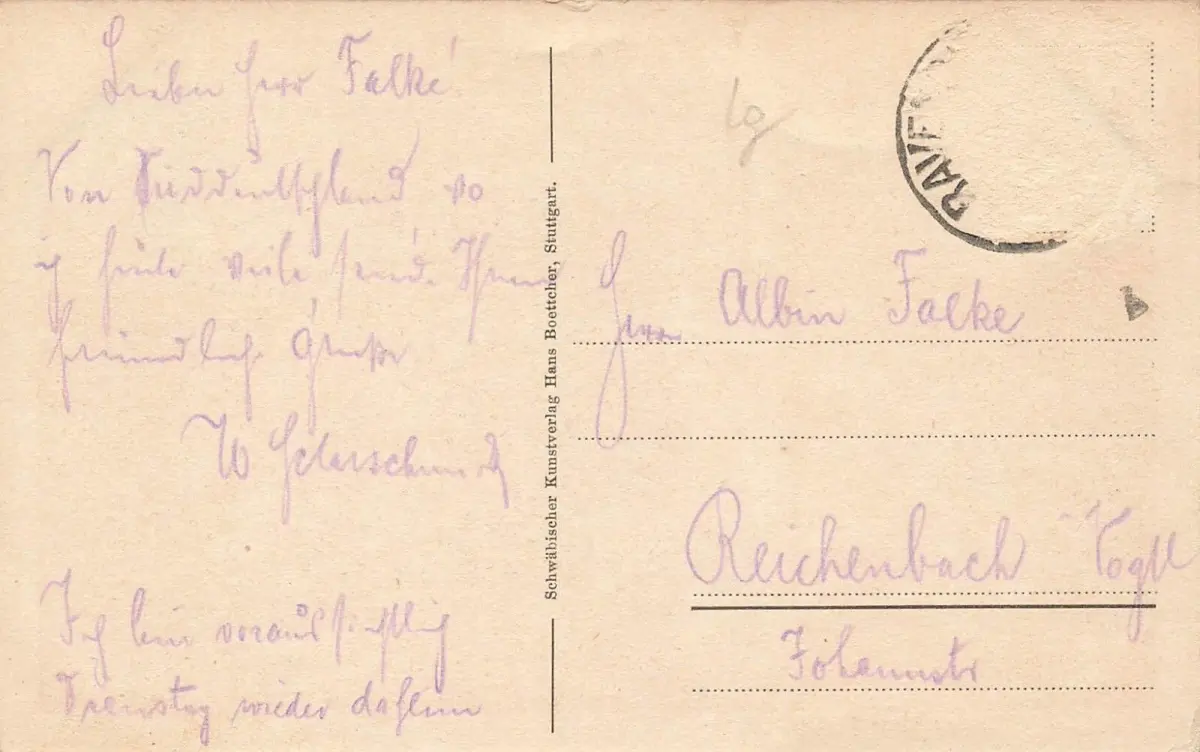 Lieber Herr Falke!
Von Süddeutschland wo
ich heute weile sende Ihnen
freundliche Grüße
W
Ich bin voraussichtlich
Dienstag wieder daheim
Schwäbischer Kunstverlag Hans Boettcher, Stuttgart.
lg
RAVE
Herrn Albin Falke
Reichenbach Vogtl
Johannstr